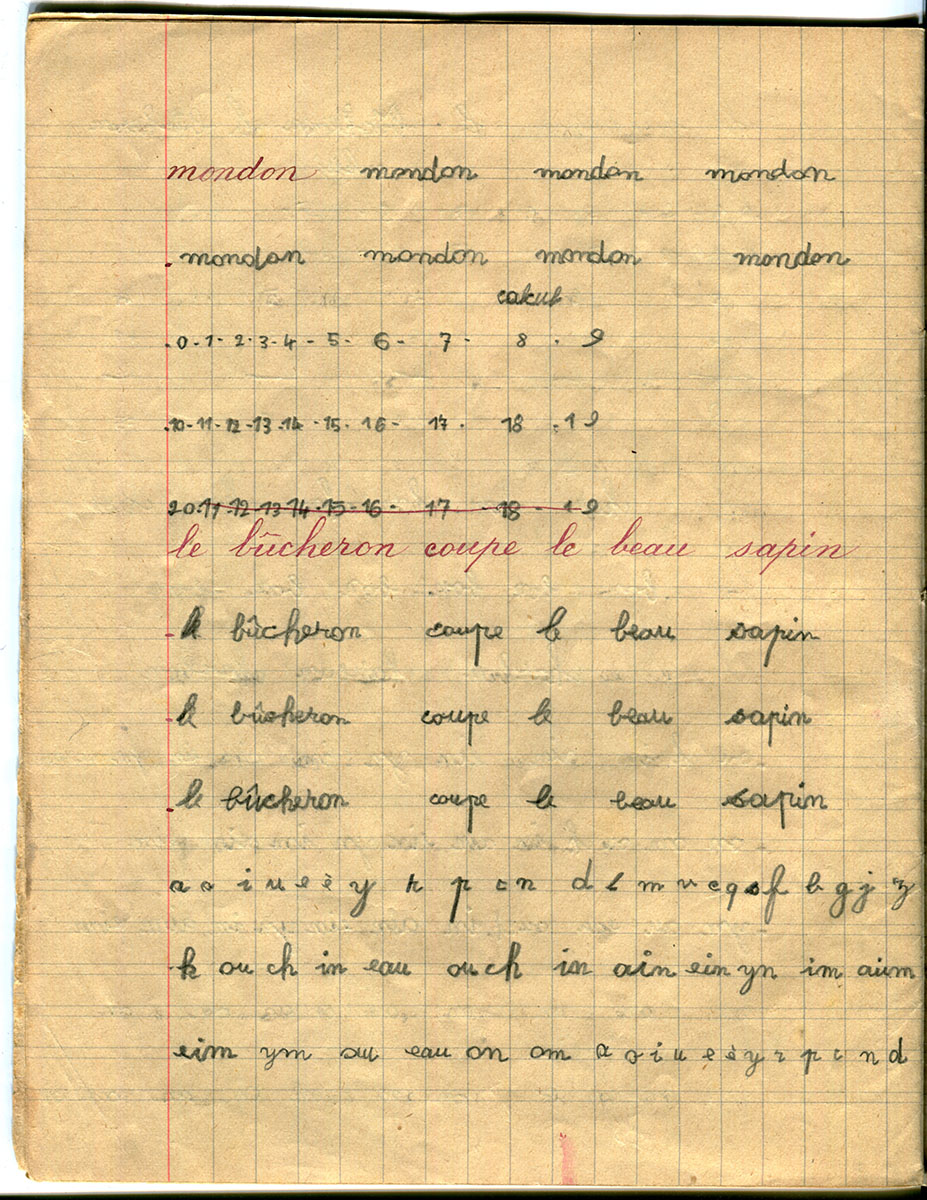 mondon mondon mondon mondon
mondon mondon mondon mondon
calcul
0-1-2-3-4-5-6-7-8-9
10-11-12-13-14-15-16-17-18-19
20-11-12-13-14-15-16-17-18-19
le bûcheron coupe le beau sapin
le bûcheron coupe le beau sapin
le bûcheron coupe le beau sapin
le bûcheron coupe le beau sapin
a o i u e è y r p t n d l m v c q s f b g j z
k ou ch in eau ou ch in ain ein yn im aim
eim ym au eau on om a o i u e è y r p t n d